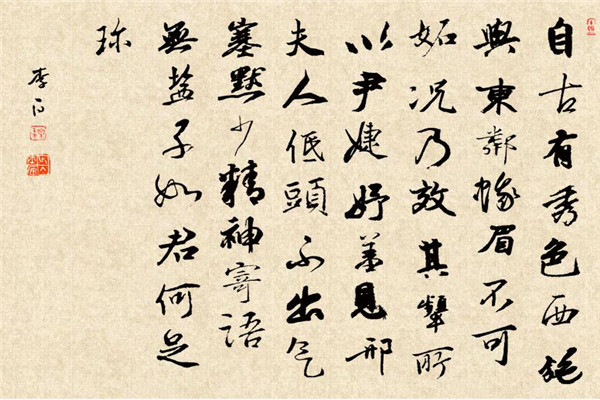 自古有秀色西施
與東鄰蛾眉不可
妬况乃效其顰所
以尹婕妤羞見邢
夫人低頭不出气
塞默少精神寄語
無盐子如君何足
珎
李